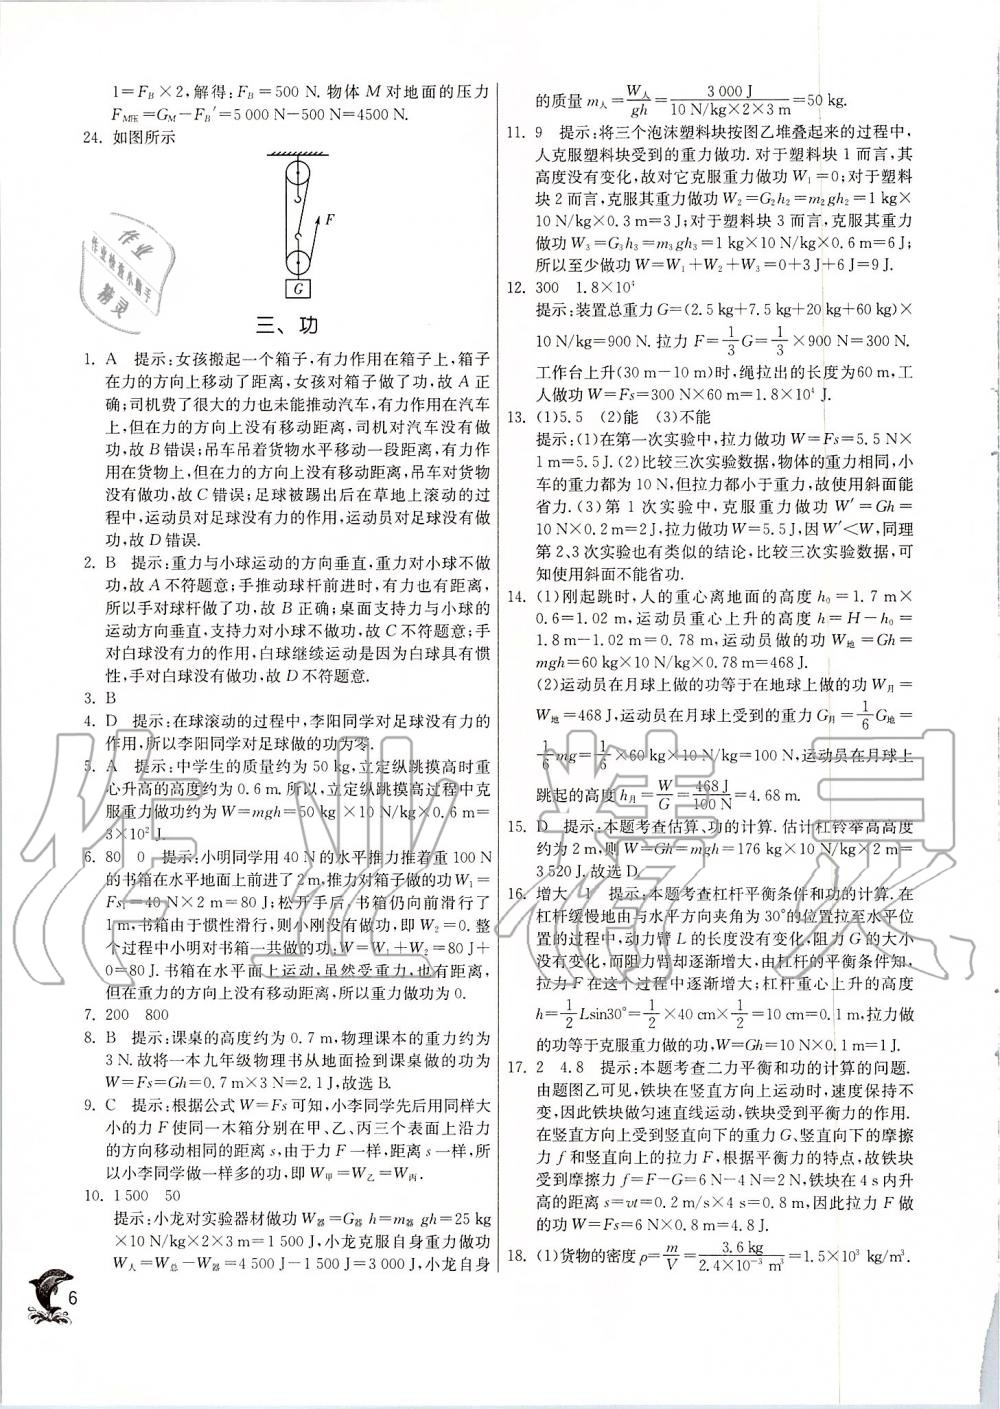 1=F_B×2,解得:F_B=500 N. 物体 M 对地面的压力
F_M压=G_M−F_B′=5 000 N−500 N=4500 N.
24. 如图所示
F
G
三、功
1. A 提示:女孩搬起一个箱子,有力作用在箱子上,箱子
在力的方向上移动了距离,女孩对箱子做了功,故 A 正
确;司机费了很大的力也未能推动汽车,有力作用在汽车
上,但在力的方向上没有移动距离,司机对汽车没有做
功,故 B 错误;吊车吊着货物水平移动一段距离,有力作
用在货物上,但在力的方向上没有移动距离,吊车对货物
没有做功,故 C 错误;足球被踢出后在草地上滚动的过
程中,运动员对足球没有力的作用,运动员对足球没有做
功,故 D 错误.
2. B 提示:重力与小球运动的方向垂直,重力对小球不做
功,故 A 不符题意;手推动球杆前进时,有力也有距离,
所以手对球杆做了功,故 B 正确;桌面支持力与小球的
运动方向垂直,支持力对小球不做功,故 C 不符题意;手
对白球没有力的作用,白球继续运动是因为白球具有惯
性,手对白球没有做功,故 D 不符题意.
3. B
4. D 提示:在球滚动的过程中,李阳同学对足球没有力的
作用,所以李阳同学对足球做的功为零.
5. A 提示:中学生的质量约为 50 kg,立定纵跳摸高时重
心升高的高度约为 0.6 m. 所以,立定纵跳摸高过程中克
服重力做功约为 W=mgh=50 kg ×10 N/kg×0.6 m=
3×10² J.
6. 80 0 提示:小明同学用 40 N 的水平推力推着重 100 N
的书箱在水平地面上前进了 2 m,推力对箱子做的功 W₁=
Fs₁=40 N×2 m=80 J;松开手后,书箱仍向前滑行了
1 m,书箱由于惯性滑行,则小刚没有做功,即 W₂=0. 整
个过程中小明对书箱一共做的功:W=W₁+W₂=80 J+
0=80 J. 书箱在水平面上运动,虽然受重力,也有距离,
但在重力的方向上没有移动距离,所以重力做功为 0.
7. 200 800
8. B 提示:课桌的高度约为 0.7 m,物理课本的重力约为
3 N. 故将一本九年级物理书从地面捡到课桌做的功为
W=Fs=Gh=0.7 m×3 N=2.1 J,故选 B.
9. C 提示:根据公式 W=Fs 可知,小李同学先后用同样大
小的力 F 使同一木箱分别在甲、乙、丙三个表面上沿力
的方向移动相同的距离 s,由于力 F 一样,距离 s 一样,所
以小李同学做一样多的功,即 W甲=W乙=W丙.
10. 1 500 50
提示:小龙对实验器材做功 W器=G器 h=m器 gh=25 kg
×10 N/kg×2×3 m=1 500 J,小龙克服自身重力做功
W人=W总−W器=4 500 J−1 500 J=3 000 J,小龙自身
的质量 m人=W人/gh=3 000 J/(10 N/kg×2×3 m)=50 kg.
11. 9 提示:将三个泡沫塑料块按图乙堆叠起来的过程中,
人克服塑料块受到的重力做功. 对于塑料块 1 而言,其
高度没有变化,故对它克服重力做功 W₁=0;对于塑料
块 2 而言,克服其重力做功 W₂=G₂h₂=m₂gh₂=1 kg×
10 N/kg×0.3 m=3 J;对于塑料块 3 而言,克服其重力
做功 W₃=G₃h₃=m₃gh₃=1 kg×10 N/kg×0.6 m=6 J;
所以至少做功 W=W₁+W₂+W₃=0+3 J+6 J=9 J.
12. 300 1.8×10⁴
提示:装置总重力 G=(2.5 kg+7.5 kg+20 kg+60 kg)×
10 N/kg=900 N. 拉力 F=1/3 G=1/3×900 N=300 N.
工作台上升(30 m−10 m)时,绳拉出的长度为60 m,工
人做功 W=Fs=300 N×60 m=1.8×10⁴ J.
13. (1)5.5 (2)能 (3)不能
提示:(1)在第一次实验中,拉力做功 W=Fs=5.5 N×
1 m=5.5 J. (2)比较三次实验数据,物体的重力相同,小
车的重力都为 10 N,但拉力都小于重力,故使用斜面能
省力. (3)第 1 次实验中,克服重力做功 W′=Gh=
10 N×0.2 m=2 J,拉力做功 W=5.5 J,因 W′<W,同理
第 2、3 次实验也有类似的结论,比较三次实验数据,可
知使用斜面不能省功.
14. (1)刚起跳时,人的重心离地面的高度 h₀=1.7 m×
0.6=1.02 m,运动员重心上升的高度 h=H−h₀=
1.8 m−1.02 m=0.78 m,运动员做的功 W地=Gh=
mgh=60 kg×10 N/kg×0.78 m=468 J.
(2)运动员在月球上做的功等于在地球上做的功 W月=
W地=468 J,运动员在月球上受到的重力 G月=1/6 G地=
1/6 mg=1/6×60 kg×10 N/kg=100 N,运动员在月球上
跳起的高度 h月=W/G=468 J/100 N=4.68 m.
15. D 提示:本题考查估算、功的计算. 估计杠铃举高高度
约为 2 m,则 W=Gh=mgh=176 kg×10 N/kg×2 m=
3 520 J. 故选 D.
16. 增大 1 提示:本题考查杠杆平衡条件和功的计算. 在
杠杆缓慢地由与水平方向夹角为 30°的位置拉至水平位
置的过程中,动力臂 L 的长度没有变化,阻力 G 的大小
没有变化,而阻力臂却逐渐增大,由杠杆的平衡条件知,
拉力 F 在这个过程中逐渐增大;杠杆重心上升的高度
h=1/2 Lsin30°=1/2×40 cm×1/2=10 cm=0.1 m,拉力做
的功等于克服重力做的功,W=Gh=10 N×0.1 m=1 J.
17. 2 4.8 提示:本题考查二力平衡和功的计算的问题.
由题图乙可见,铁块在竖直方向上运动时,速度保持不
变,因此铁块做匀速直线运动,铁块受到平衡力的作用.
在竖直方向上受到竖直向下的重力 G、竖直向下的摩擦
力 f 和竖直向上的拉力 F,根据平衡力的特点,故铁块
受到摩擦力 f=F−G=6 N−4 N=2 N,铁块在 4 s 内升
高的距离 s=vt=0.2 m/s×4 s=0.8 m,因此拉力 F 做
的功 W=Fs=6 N×0.8 m=4.8 J.
18. (1)货物的密度 ρ=m/V=3.6 kg/(2.4×10⁻³ m³)=1.5×10³ kg/m³.
6
作业
作业检查小助手
精灵
作业精灵